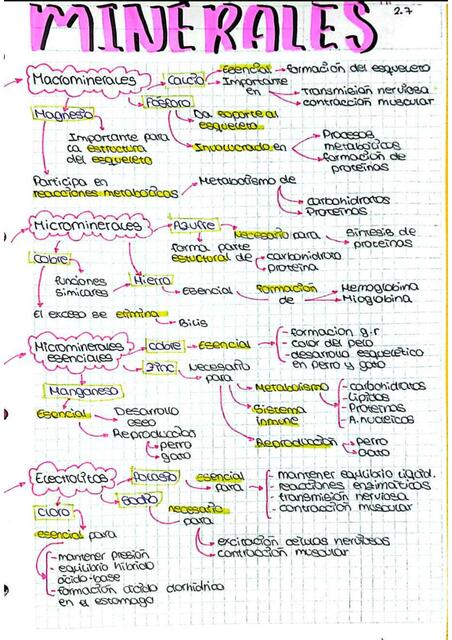 MINERALES
2.7
Macrominerales
Calcio
Esencial
formación del esqueleto
Importante
en
transmisión nerviosa
contracción muscular
Fósforo
Magnesio
Da soporte al
esqueleto
Importante para
la estructura
del esqueleto
Involucrado en
Procesos
metabólicos
formación de
proteínas
Participa en
reacciones metabólicas
Metabolismo de
carbohidratos
Proteínas
Microminerales
Azufre
necesario para
Síntesis de
proteínas
forma parte
estuctural de
carbohidrato
proteína
Cobre
funciones
similares
Hierro
Esencial
formación
de
Hemoglobina
Mioglobina
El exceso se elimina
Bilis
Microminerales
esenciales
cobre
Esencial
- formacion g.r
- color del pelo
- desarrollo esquelético
en perro y gato
Zinc
Necesario
para
Metabolismo
- carbohidratos
- Lípidos
- Proteínas
- A. nucleicos
Manganeso
Esencial
Desarrollo
oseo
Reproducción
perro
gato
Sistema
inmune
Reproducción
Perro
Gato
Electrolitos
potasio
esencial
para
- mantener equilibrio liquid.
- reacciones enzimáticas
- transmisión nerviosa
- contracción muscular
sodio
cloro
necesario
para
esencial para
excitación células nerviosas
contracción muscular
- mantener presión
- equilibrio hibrido
ácido-base
- formación ácido clorhídrico
en el estomago